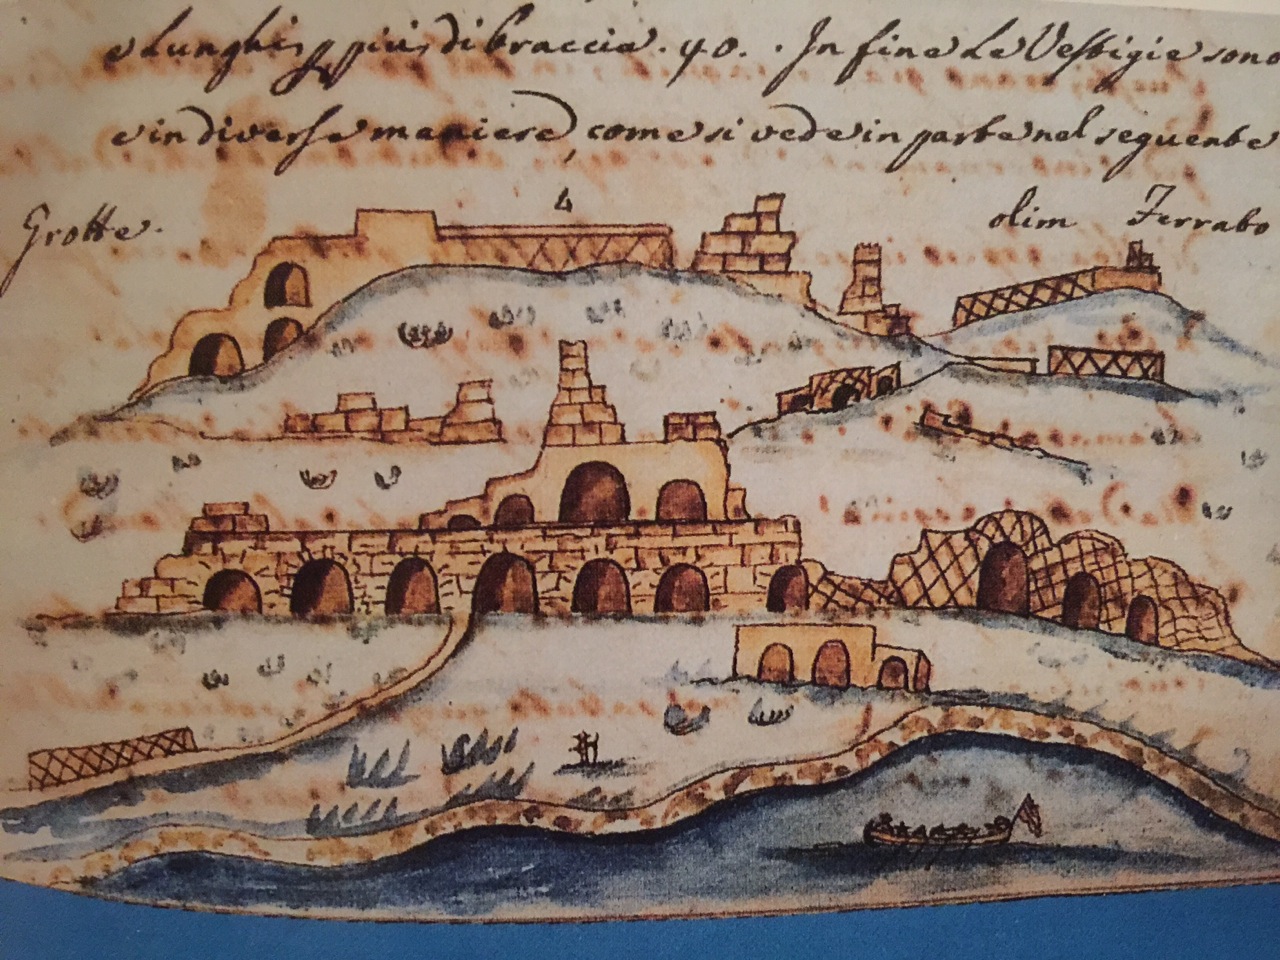 e Lunghi più di braccia. 40. . In fine Le Vestigie sono
e in diverse maniere, come si vede in parte nel seguente
4
Grotte.
olim Ferrabo